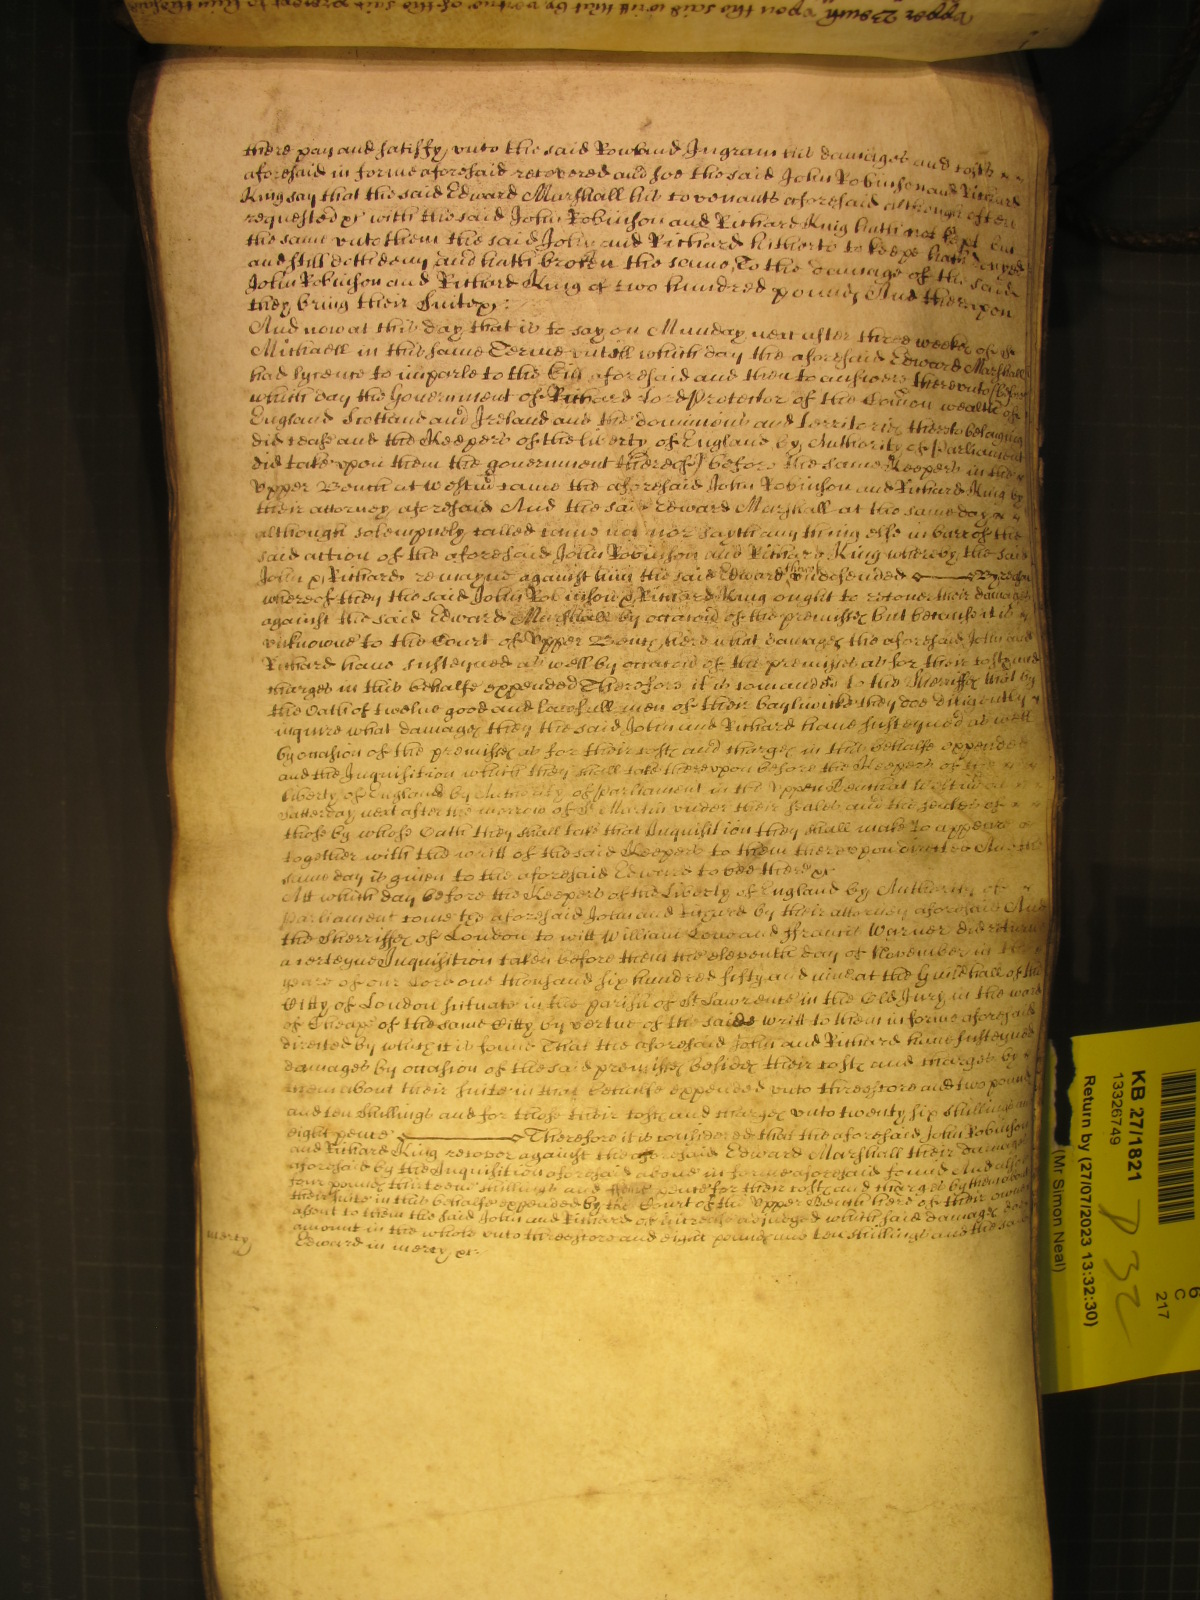 Upper Bench upon the said writt that by vertue of the said precept to him
there pay and satisfy vnto the said Rowland Ingram his damages and costs
aforesaid in forme aforesaid recovered and soe the said John Robinson and Richard
King say that the said Edward Marshall his covenants aforesaid although often
requested &c with the said John Robinson and Richard King hath not kept but
the same vnto them the said John and Richard hitherto to keepe hath denyed
and still doth deny and hath broken the same To the damage of the said
John Robinson and Richard King of two hundred pounds And thereupon
they bring their suite &c:
And now at this day that is to say on Munday next after three weekes of St
Michaell in this same Terme vntill which day the aforesaid Edward Marshall
had lycence to imparle to the bill aforesaid and then to answere therevnto before
which day the Government of Richard Lord Protector of the Comon wealth of
England Scotland and Ireland and the dominions and territories thereto belonging
did cease and the Keepers of the liberty of England by Authority of Parliament
did take vpon them the government thereof) before the same Keepers in the
Vpper Bench at Westmr came the aforesaid John Robinson and Richard King by
their attorney aforesaid And the said Edward Marshall at the same day
although solempnely called came not nor sayth any thing else in barr of the
said action of the aforesaid John Robinson and Richard King whereby the said
John & Richard remayne against him the said Edward therein vndefended By reason
whereof they the said John Robinson & Richard King ought to recover their damages
against the said Edward Marshall by occasion of the premisses but because it is
vnknowne to the Court of Vpper Bench here what damages the aforesaid John and
Richard have susteyned as well by occasion of the premisses as for their costs and
charges in this behalfe expended Therefore it is comanded to the Sherriffes that by
the Oath of twelve good and lawfull men of their bayliwicke they doe diligently
inquire what damages they the said John and Richard have susteyned as well
by occasion of the premisses as for their costs and charges in this behalfe expended
and the Inquisition which they shall take therevpon before the Keepers of the
liberty of England by Authority of parliament in the Vpper Bench at Westmr on
Satterday next after the morrow of St Martin vnder their seales and the seales of
those by whose Oath they shall take that Inquisition they shall make to appeare
together with the writt of the said Keepers to them therevpon directed And the
same day is given to the aforesaid Edward to bee there &c
Att which day before the Keepers of the Liberty of England by Authority of
Parliament come the aforesaid John and Richard by their attorney aforesaid And
the Sherriffes of London to witt William and Francis Warner did returne
a certeyne Inquisition taken before them the eleventh day of November in the
yeare of our Lord one thousand six hundred fifty and nine at the Guildhall of the
Citty of London situate in the parish of St Lawrence in the Old Jury in the ward
of Cheape of the same Citty by vertue of the said writt to them in forme aforesaid
directed by which it is found That the aforesaid John and Richard have susteyned
damages by occasion of the said premisses besides their costs and charges by
them about their suite in that behalfe expended vnto threescore and two pounds
and ten shillings and for those their costs and charges vnto twenty six shillings and
eight pence Therefore it is considered that the aforesaid John Robinson
and Richard King recover against the aforesaid Edward Marshall their damages
aforesaid by the Inquisition aforesaid above in forme aforesaid found And alsoe
four pounds thirteene shillings and foure pence for their costs and charges by them about
their suite in this behalfe expended by the Court of the Vpper Bench here of their owne
assent to them the said John and Richard of increase adjudged which said damages doe
amount in the whole vnto threescore and eight pounds and ten shillings and the said
mercy
Edward in mercy &c.
KB 27/1821
13326749
Return by (27/07/2023 13:32:30)
(Mr Simon Neal)
6
C
217
P 32